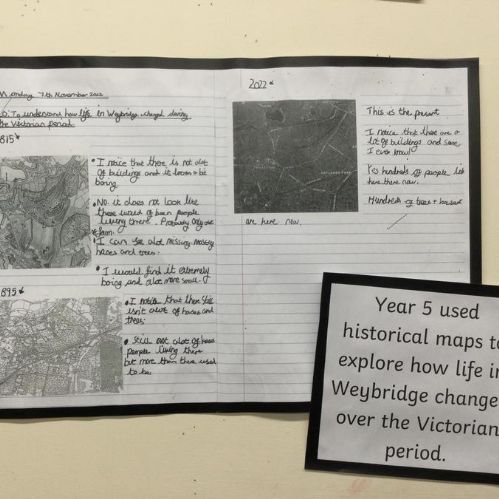 Monday 7th November 2022
LO: To understand how life in Weybridge changed during
the Victorian period.
1815
• I notice that there is not alot
of buildings and it
boring.
• NO. it does not look like
there would of been people
living there. Probably only
farm.
• I can see alot missing. Missing
houses and trees.
• I would find it extremely
boring and alot more small.
1895
• I notice that there still
isn't alot of houses and
trees.
• Still not alot of houses
people living there
but more than there used
to be.
2022
This is the present
I notice that there are a
lot of buildings and some
I even know!
hundreds of people live
here now.
Hundreds of trees + houses
are here now.
Year 5 used
historical maps to
explore how life in
Weybridge change
over the Victorian
period.